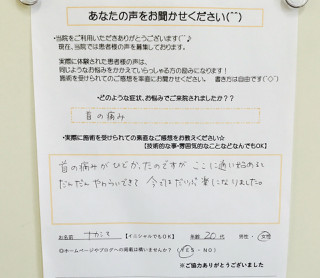 あなたの声をお聞かせください(^^)
・当院をご利用いただきありがとうございます(^^♪
現在、当院では患者様の声を募集しております。
実際に体験された患者様の声は、
同じようなお悩みをかかえていらっしゃる方の励みになります！
施術を受けられてのご感想を率直にお聞かせください。 書き方は自由です(^○^)
・どのような症状、お悩みでご来院されましたか？？
首の痛み
・実際に施術を受けられての率直なご感想をお教えください☆
【技術的な事・雰囲気的なことなどなんでもOK】
首の痛みがひどかったのですが ここに通い始めると
だんだん やわらいできて 今ではだいぶ楽になりました。
お名前 ナカシマ 【イニシャルでもOK】 年齢 20代 男性・女性
◎ホームページやブログへの掲載は構いませんか？ (YES・NO)
※ご協力ありがとうございました